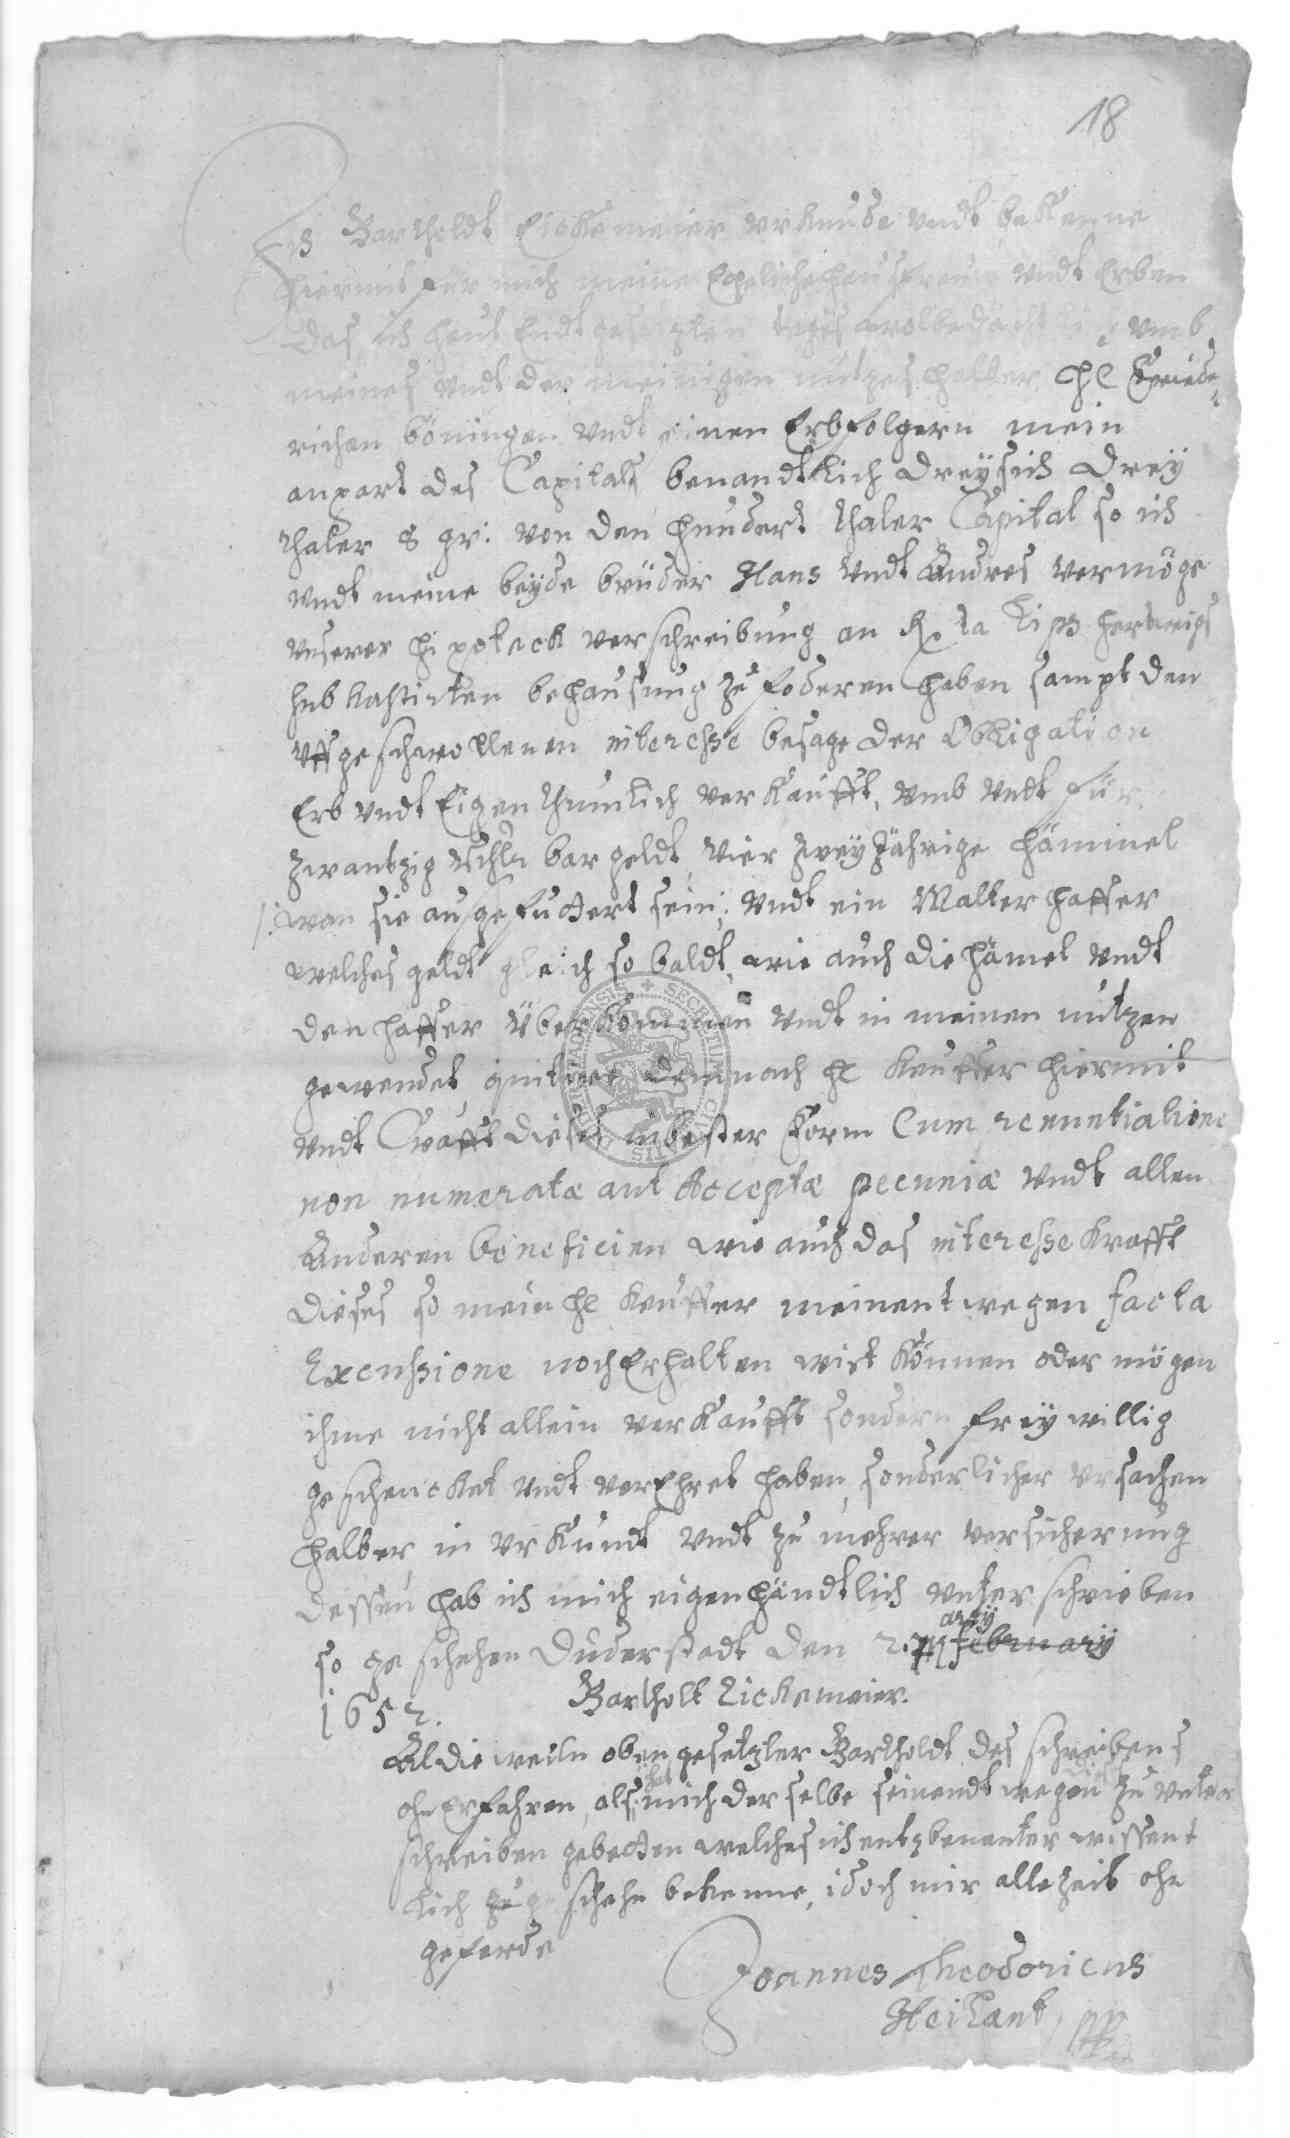 18
Ich Bartholdt Eickemeier urkunde undt bekenne
hiermit für mich meine Eheliche hausfrauw undt Erben
das ich heut Endtgesetzten tages wolbedacht umb
meines undt der meinigen nutzes halber he Friede-
richen Böningen undt seinen Erbfolgern mein
anpart des Capitals benandtlich dreysich drey
thaler 8 gr: von den hundert thaler Capital so ich
undt meine beyde brüder Hans undt Andres vermöge
unserer hipoteck verschreibung an
behausung zu foderen haben sampt den
uffgeschwollenen interesse besage der Obligation
Erb undt Eigenthumlich verkaufft, umb undt für
zwantzig Rthlr bar geldt, vier zwey Jährige hämmel
/: wan sie ausgefuttert sein :/ undt ein Malter haffer
welches geldt gleich so baldt, wie auch die hämel undt
den haffer überkommen undt in meinen nutzen
gewendet, quitire demnach he keuffer hiermit
undt Crafft dieses in bester Form Cum renuntiatione
non numeratæ aut Acceptæ pecuniæ undt allen
Anderen beneficien wie auch das interesse krafft
dieses so mein he keuffer meinentwegen facta
Excussione noch Erhalten wirt können oder mögen
ihme nicht allein verkaufft sondern freywillig
geschencket undt verEhret haben, sonderlicher ursachen
halber, in urkundt undt zu mehrer versicherung
dessen, hab ich mich eigenhändtlich unterschrieben
so geschehen Duderstadt den 2. Martij february
1652. Bartholt Eickemeier.
Aldieweiln obengesetzter Bartholdt des schreibens
ohnerfahren, als hat mich derselbe seinendtwegen dis zu unter
schreiben gebetten welches ich entzbenanter wissent
lich zu geschehn bekenne, idoch mir allezeit ohn
geferde
Joannes Theodoricus
Heiland,